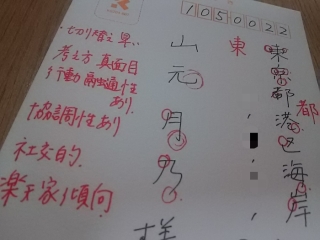 1050022
東京都港区海岸
東
都
山元 月乃
様
・切り替え早い
考え方 真面目
行動 融通性あり
協調性あり
社交的
楽天家傾向